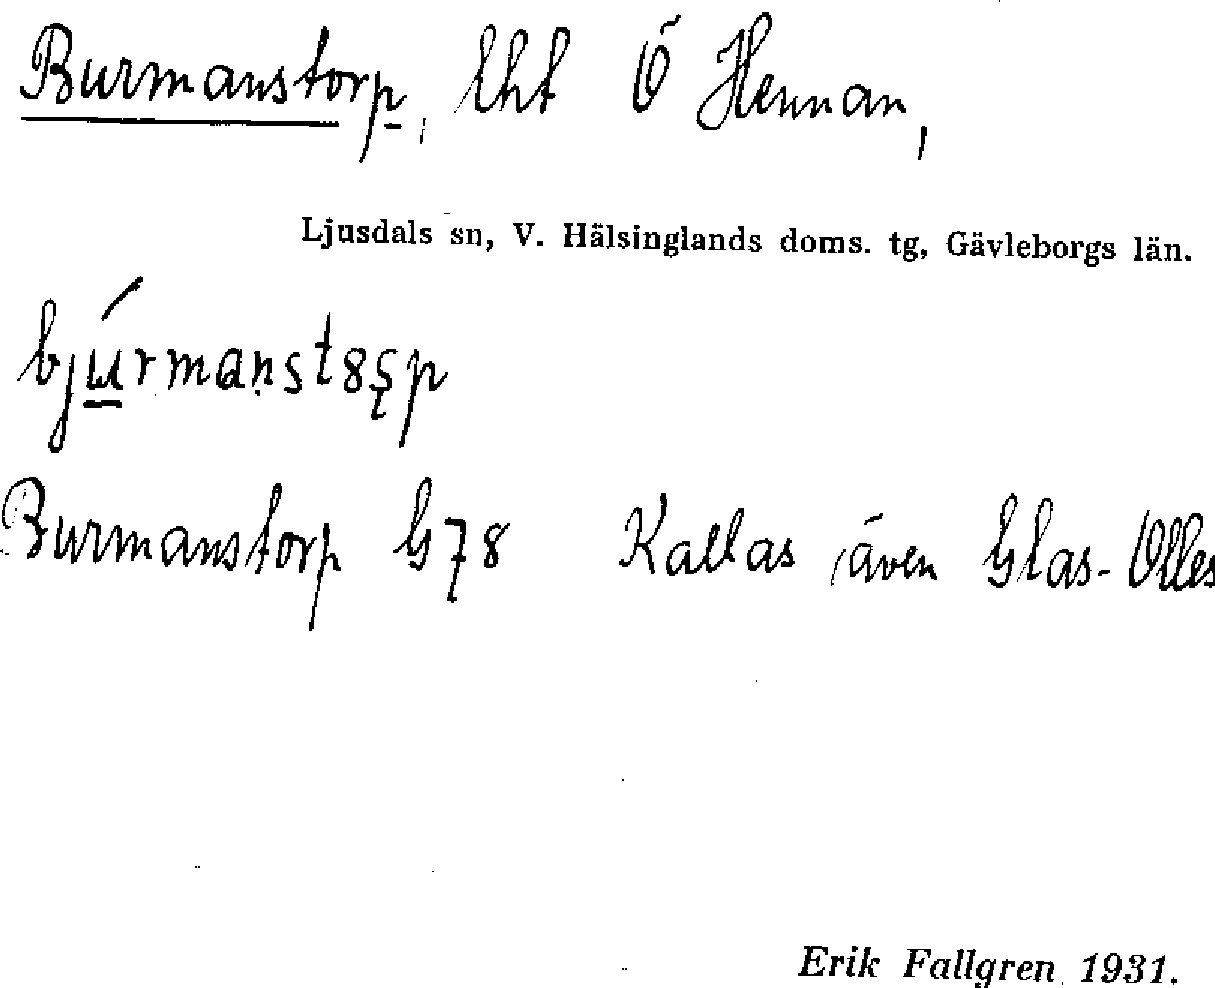 Burmanstorp, lht Ö Hennan,
Ljusdals sn, V. Hälsinglands doms. tg, Gävleborgs län.
bjúrmanst8ʂp
Burmanstorp G78 Kallas även Glas-Olles
Erik Fallgren 1931.